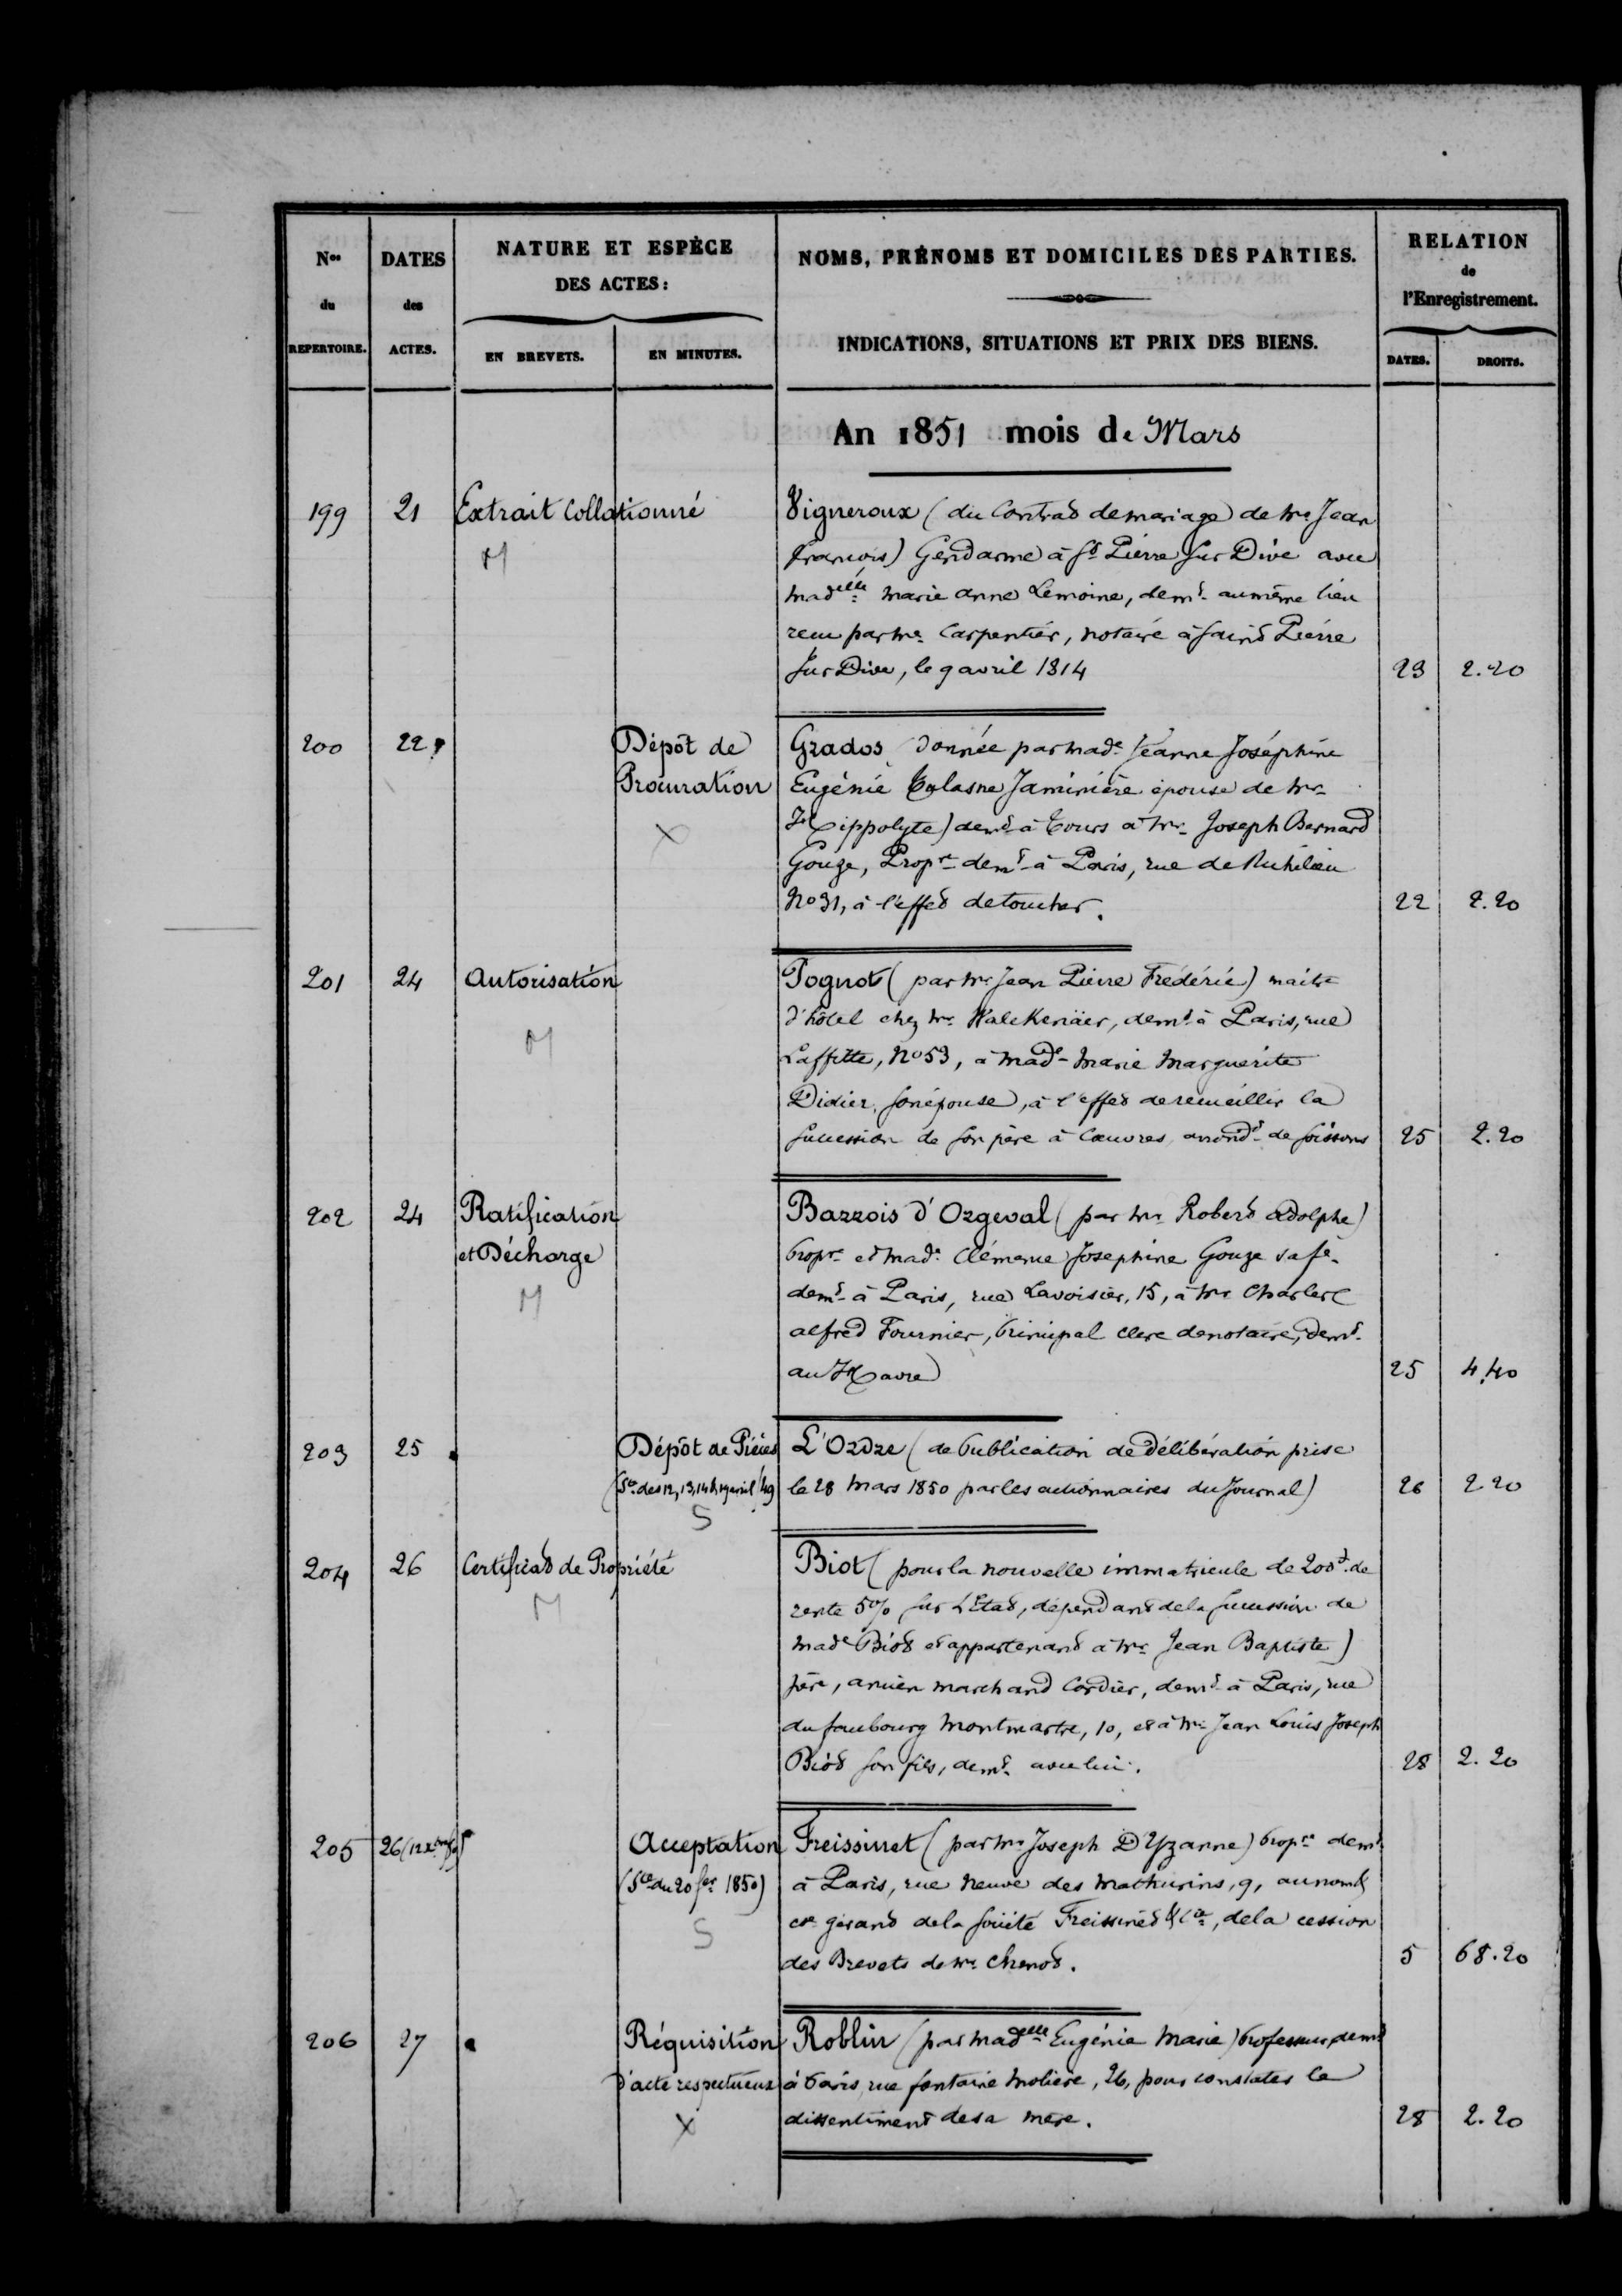 Nos du REPERTOIRE.
DATES des ACTES.
NATURE ET ESPÈCE
DES ACTES:
EN BREVETS.
EN MINUTES.
NOMS, PRÉNOMS ET DOMICILES DES PARTIES.
INDICATIONS, SITUATIONS ET PRIX DES BIENS.
RELATION
de
l'Enregistrement.
DATES.
DROITS.
An 1851 mois de Mars
199 21 Extrait Collationné Vigneroux (du Contrat de mariage de Mr Jean
M françois) Gendarme à St Pierre sur Dive avec
Madelle Marie Anne Lemoine, demt au même lieu
reçu par Me Carpentier, notaire à Saint Pierre
sur Dive, le 9 avril 1814 23 2.20
200 22 Dépôt de Grados (donnée par Made Jeanne Joséphine
Procuration Eugénie Jaminière épouse de Mr
X Hippolyte) demt à Tours à Mr Joseph Bernard
Gouge, Propre demt à Paris, rue de Richelieu
No 31, à l'effet de toucher. 22 2.20
201 24 Autorisation Pognot (par Mr Jean Pierre Frédéric) maître
d'hôtel chez Mr Walckenäer, demt à Paris, rue
M Laffitte, No 53, à Made Marie Marguerite
Didier, son épouse, à l'effet de recueillir la
succession de son père à Cœuvres, arrondt de Soissons 25 2.20
202 24 Ratification Bazzois d'Orgeval (par Mr Robert Adolphe)
et Décharge propre et Made Clémence Josephine Gouge sa fe
M demt à Paris, rue Lavoisier, 15, à Mr Charles
alfred Fournier, principal clerc de notaire, demt
au Havre 25 4,40
203 25 Dépôt de Pièces L'Ordre (de publication de délibération prise
(Sté des 12, 13, 14 & 19 avril 49 le 28 Mars 1850 par les actionnaires du Journal) 26 2.20
S
204 26 Certificat de Propriété Biot (pour la nouvelle immatricule de 200f. de
M rente 5% sur L'Etat, dépendant de la succession de
Made Biot et appartenant à Mr Jean Baptiste)
père, ancien marchand Cordier, demt à Paris, rue
du faubourg Montmartre, 10, et à Mr Jean Louis Joseph
Biot son fils, demt avec lui. 28 2.20
205 26 Acceptation Freissinet (par Mr Joseph D'Yzanne) propre demt
(Sté du 20 fer 1850) à Paris, rue Neuve des Mathurins, 9, au nom &
S ce gérant de la Société Freissinet & Cie, de la cession
des Brevets de Mr Chenot. 5 68.20
206 27 Réquisition Roblin (par Madelle Eugénie Marie) Professeur, demt
d'acte respectueux à Paris, rue fontaine Molière, 26, pour constater le
X dissentiment de sa mère. 28 2.20